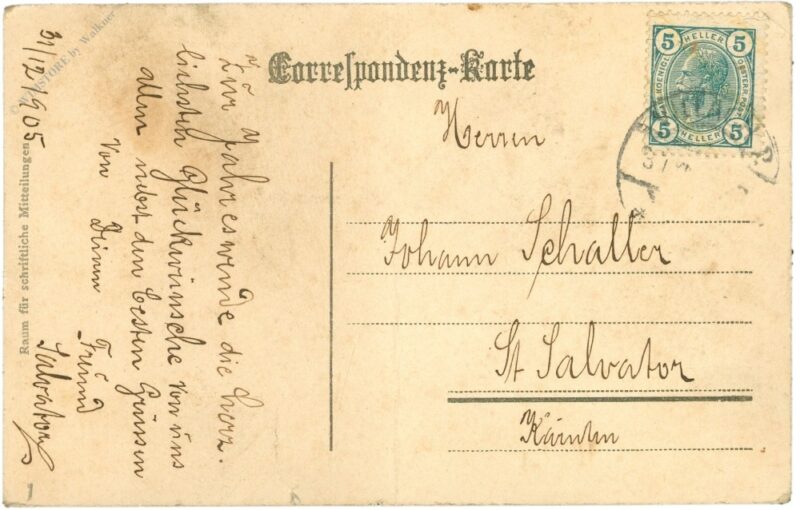 Correspondenz-Karte
5 HELLER 5
5 HELLER 5
Herrn
Johann Schaller
St Salvator
Kärnten
31/12 905
Zur Jahreswende die herz.
lichsten Glückwünsche von uns
allen nebst den besten Grüssen
von Deinem
Freund
Salvator
Raum für schriftliche Mitteilungen
STORE by Walkner